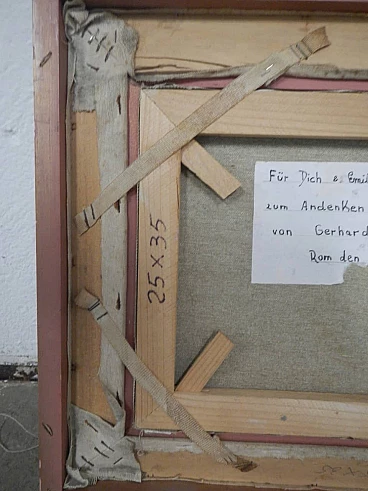 25 x 35
Für Dich & Emil
zum Andenken
von Gerhard
Rom den